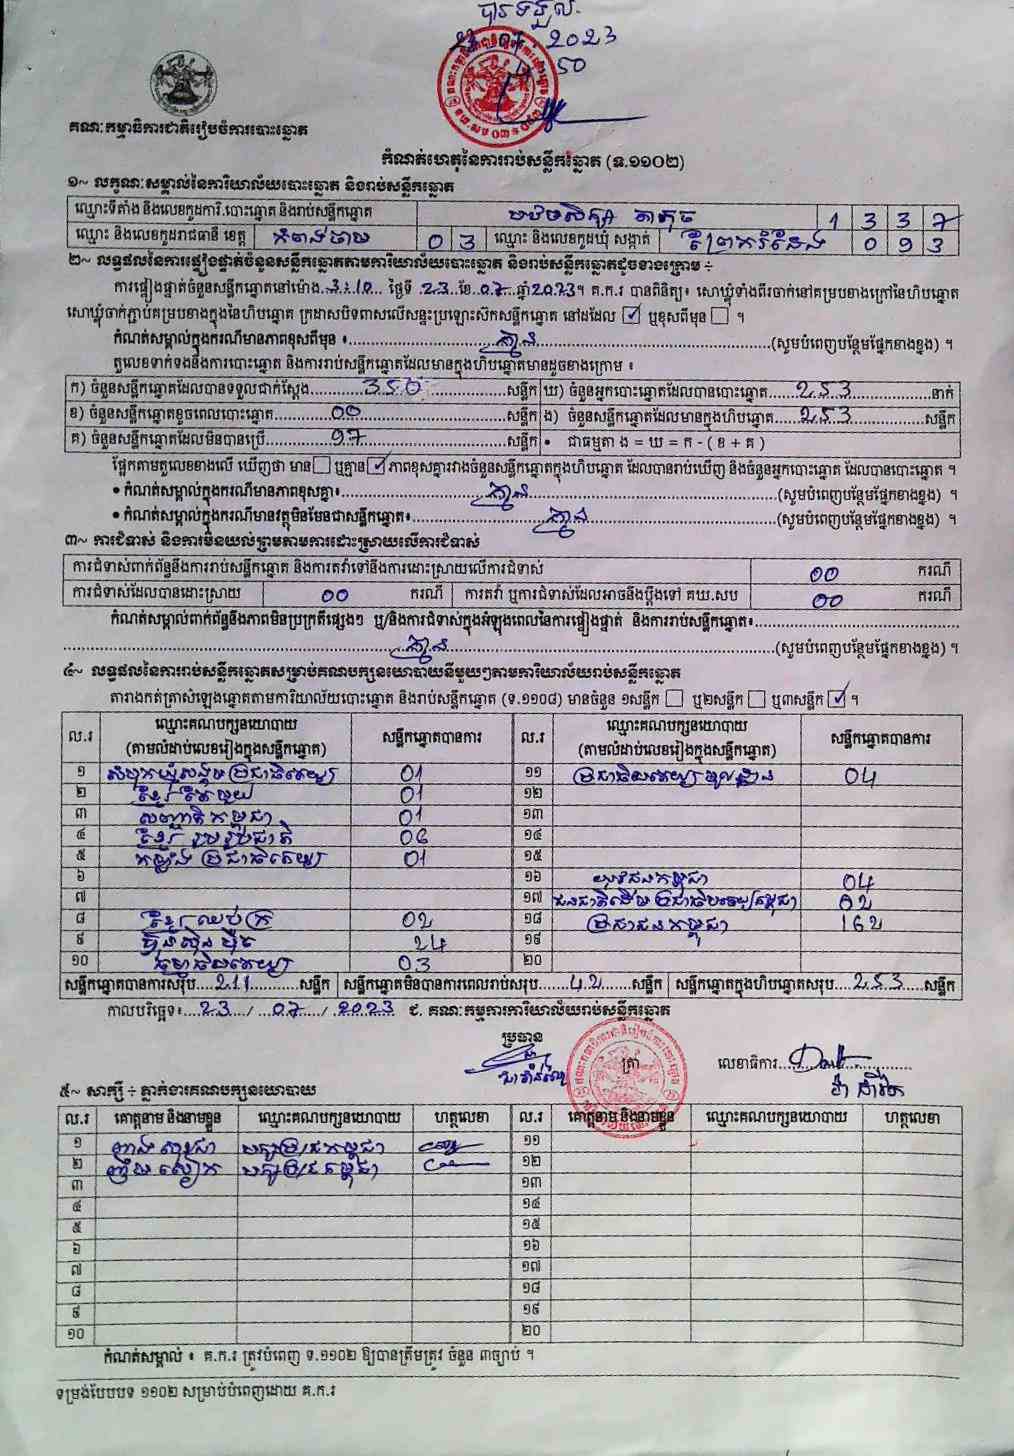 បានទទួល
23 07 2023
4 50
គណៈកម្មាធិការជាតិរៀបចំការបោះឆ្នោត
កំណត់ហេតុនៃការរាប់សន្លឹកឆ្នោត (ទ.១១០២)
១~ លក្ខណៈសម្គាល់នៃការិយាល័យបោះឆ្នោត និងរាប់សន្លឹកឆ្នោត
ឈ្មោះទីតាំង និងលេខកូដការិ.បោះឆ្នោត និងរាប់សន្លឹកឆ្នោត បឋមសិក្សា 1 3 3 7
ឈ្មោះ និងលេខកូដរាជធានី ខេត្ត កំពង់ចាម 0 3 ឈ្មោះ និងលេខកូដឃុំ សង្កាត់ 0 9 3
២~ លទ្ធផលនៃការផ្ទៀងផ្ទាត់ចំនួនសន្លឹកឆ្នោតតាមការិយាល័យបោះឆ្នោត និងរាប់សន្លឹកឆ្នោតដូចខាងក្រោម ÷
ការផ្ទៀងផ្ទាត់ចំនួនសន្លឹកឆ្នោតនៅម៉ោង 3:10 ថ្ងៃទី 23 ខែ 07 ឆ្នាំ 2023។ គ.ក.រ បានពិនិត្យ៖ សោឃ្លុំទាំងពីរចាក់នៅគម្របខាងក្រៅនៃហិបឆ្នោត
សោឃ្លុំចាក់ភ្ជាប់គម្របខាងក្នុងនៃហិបឆ្នោត ក្រដាសបិទពាសលើសន្ទះប្រឡោះសិកសន្លឹកឆ្នោត នៅដដែល ☑ ឬខុសពីមុន ☐ ។
កំណត់សម្គាល់ក្នុងករណីមានភាពខុសពីមុន ៖ គ្មាន (សូមបំពេញបន្ថែមផ្នែកខាងខ្នង) ។
តួលេខទាក់ទងនឹងការបោះឆ្នោត និងការរាប់សន្លឹកឆ្នោតដែលមានក្នុងហិបឆ្នោតមានដូចខាងក្រោម ៖
ក) ចំនួនសន្លឹកឆ្នោតដែលបានទទួលជាក់ស្តែង 350 សន្លឹក ឃ) ចំនួនអ្នកបោះឆ្នោតដែលបានបោះឆ្នោត 253 នាក់
ខ) ចំនួនសន្លឹកឆ្នោតខូចពេលបោះឆ្នោត 00 សន្លឹក ង) ចំនួនសន្លឹកឆ្នោតដែលមានក្នុងហិបឆ្នោត 253 សន្លឹក
គ) ចំនួនសន្លឹកឆ្នោតដែលមិនបានប្រើ 97 សន្លឹក • ជាធម្មតា ង = ឃ = ក - ( ខ + គ )
ផ្អែកតាមតួលេខខាងលើ ឃើញថា មាន ☐ ឬគ្មាន ☑ ភាពខុសគ្នារវាងចំនួនសន្លឹកឆ្នោតក្នុងហិបឆ្នោត ដែលបានរាប់ឃើញ និងចំនួនអ្នកបោះឆ្នោត ដែលបានបោះឆ្នោត ។
• កំណត់សម្គាល់ក្នុងករណីមានភាពខុសគ្នា៖ គ្មាន (សូមបំពេញបន្ថែមផ្នែកខាងខ្នង) ។
• កំណត់សម្គាល់ក្នុងករណីមានវត្ថុមិនមែនជាសន្លឹកឆ្នោត៖ គ្មាន (សូមបំពេញបន្ថែមផ្នែកខាងខ្នង) ។
៣~ ការជំទាស់ និងការមិនយល់ព្រមតាមការដោះស្រាយលើការជំទាស់
ការជំទាស់ពាក់ព័ន្ធនឹងការរាប់សន្លឹកឆ្នោត និងការតវ៉ាទៅនឹងការដោះស្រាយលើការជំទាស់ 00 ករណី
ការជំទាស់ដែលបានដោះស្រាយ 00 ករណី ការតវ៉ា ឬការជំទាស់ដែលអាចនឹងប្តឹងទៅ គឃ.សប 00 ករណី
កំណត់សម្គាល់ពាក់ព័ន្ធនឹងភាពមិនប្រក្រតីផ្សេងៗ ឬ/និងការជំទាស់ក្នុងអំឡុងពេលនៃការផ្ទៀងផ្ទាត់ និងការរាប់សន្លឹកឆ្នោត៖
គ្មាន (សូមបំពេញបន្ថែមផ្នែកខាងខ្នង) ។
៤~ លទ្ធផលនៃការរាប់សន្លឹកឆ្នោតសម្រាប់គណបក្សនយោបាយនីមួយៗតាមការិយាល័យរាប់សន្លឹកឆ្នោត
តារាងកត់ត្រាសំឡេងឆ្នោតតាមការិយាល័យបោះឆ្នោត និងរាប់សន្លឹកឆ្នោត (ទ.១១០៨) មានចំនួន ១សន្លឹក ☐ ឬ២សន្លឹក ☐ ឬ៣សន្លឹក ☑ ។
ល.រ ឈ្មោះគណបក្សនយោបាយ (តាមលំដាប់លេខរៀងក្នុងសន្លឹកឆ្នោត) សន្លឹកឆ្នោតបានការ ល.រ ឈ្មោះគណបក្សនយោបាយ (តាមលំដាប់លេខរៀងក្នុងសន្លឹកឆ្នោត) សន្លឹកឆ្នោតបានការ
១ សំបុកឃ្មុំសង្គមប្រជាធិបតេយ្យ 01 ១១ ប្រជាធិបតេយ្យមូលដ្ឋាន 04
២ ខ្មែរតែមួយ 01 ១២
៣ សញ្ជាតិកម្ពុជា 01 ១៣
៤ ខ្មែររួបរួមជាតិ 06 ១៤
៥ កម្លាំងប្រជាធិបតេយ្យ 01 ១៥
៦ ១៦ យុវជនកម្ពុជា 04
៧ ១៧ ជនជាតិដើមប្រជាធិបតេយ្យកម្ពុជា 02
៨ ខ្មែរឈប់ក្រ 02 ១៨ ប្រជាជនកម្ពុជា 162
៩ ហ្វ៊ុនស៊ិនប៉ិច 24 ១៩
១០ ធម្មាធិបតេយ្យ 03 ២០
សន្លឹកឆ្នោតបានការសរុប 211 សន្លឹក សន្លឹកឆ្នោតមិនបានការពេលរាប់សរុប 42 សន្លឹក សន្លឹកឆ្នោតក្នុងហិបឆ្នោតសរុប 253 សន្លឹក
កាលបរិច្ឆេទ៖ 23 / 07 / 2023 ជ. គណៈកម្មការការិយាល័យរាប់សន្លឹកឆ្នោត
ប្រធាន ត្រា លេខាធិការ
៥~ សាក្សី ÷ ភ្នាក់ងារគណបក្សនយោបាយ
ល.រ គោត្តនាម និងនាមខ្លួន ឈ្មោះគណបក្សនយោបាយ ហត្ថលេខា ល.រ គោត្តនាម និងនាមខ្លួន ឈ្មោះគណបក្សនយោបាយ ហត្ថលេខា
១ ១១
២ ១២
៣ ១៣
៤ ១៤
៥ ១៥
៦ ១៦
៧ ១៧
៨ ១៨
៩ ១៩
១០ ២០
កំណត់សម្គាល់ ៖ គ.ក.រ ត្រូវបំពេញ ទ.១១០២ ឱ្យបានត្រឹមត្រូវ ចំនួន ៣ច្បាប់ ។
ទម្រង់បែបបទ ១១០២ សម្រាប់បំពេញដោយ គ.ក.រ